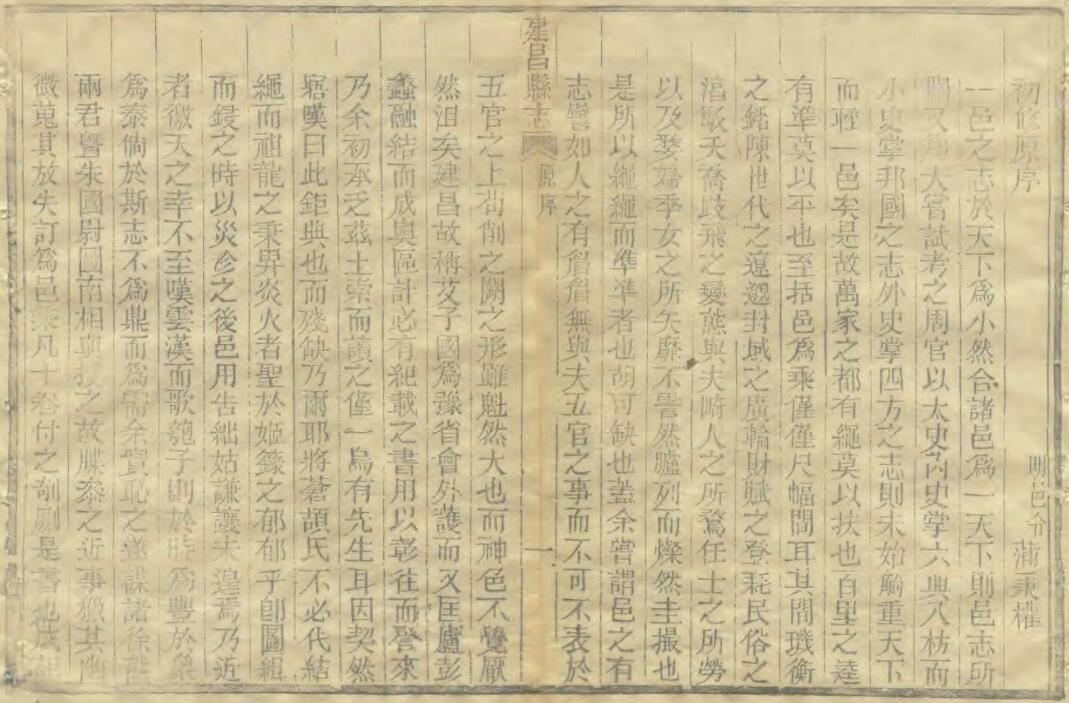 初修原序
明邑令蒲秉權
一邑之志於天下爲小然合諸邑爲一天下則邑志所
關又大嘗試考之周官以太史內史掌六典八枋而
小史掌邦國之志外史掌四方之志則未始觭重天下
而輕一邑矣是故萬家之都有繩莫以扶也百里之逵
有準莫以平也至括邑爲乘僅僅尺幅間耳其間璣衡
之錯陳世代之遼邈封域之廣輪財賦之登耗民俗之
淳駁夭喬跂飛之變態與夫畸人之所騖任士之所勞
以及婺婦季女之所矢靡不晋然臚列而燦然圭撮也
是所以繩繩而準準者也胡可缺也蓋余嘗謂邑之有
志譬如人之有眉眉無與夫五官之事而不可不表於
建昌縣志 原序 一
五官之上苟削之闕之形雖魁然大也而神色不覺厭
然沮矣建昌故稱艾子國爲豫省會外護而又匡廬彭
蠡融結而成輿區計必有紀載之書用以彰往而詧來
乃余初承乏茲土索而讀之僅一烏有先生耳因契然
寤嘆曰此鉅典也而殘缺乃爾耶將蒼頡氏不必代結
繩而祖龍之秉畀炎火者聖於姬籙之郁郁乎卽圖緝
而鋟之時以災沴之後邑用告絀姑謙讓未遑焉乃近
者徼天之幸不至嘆雲漢而歌 子則於時爲豐於象
爲泰倘於斯志不爲鼎而爲需余實恥之遂謀諸徐
兩君曁朱國尉圖南相與 之故牒泰之近事 其幽
微蒐其放失訂爲邑乘凡十卷付之剞劂是 也